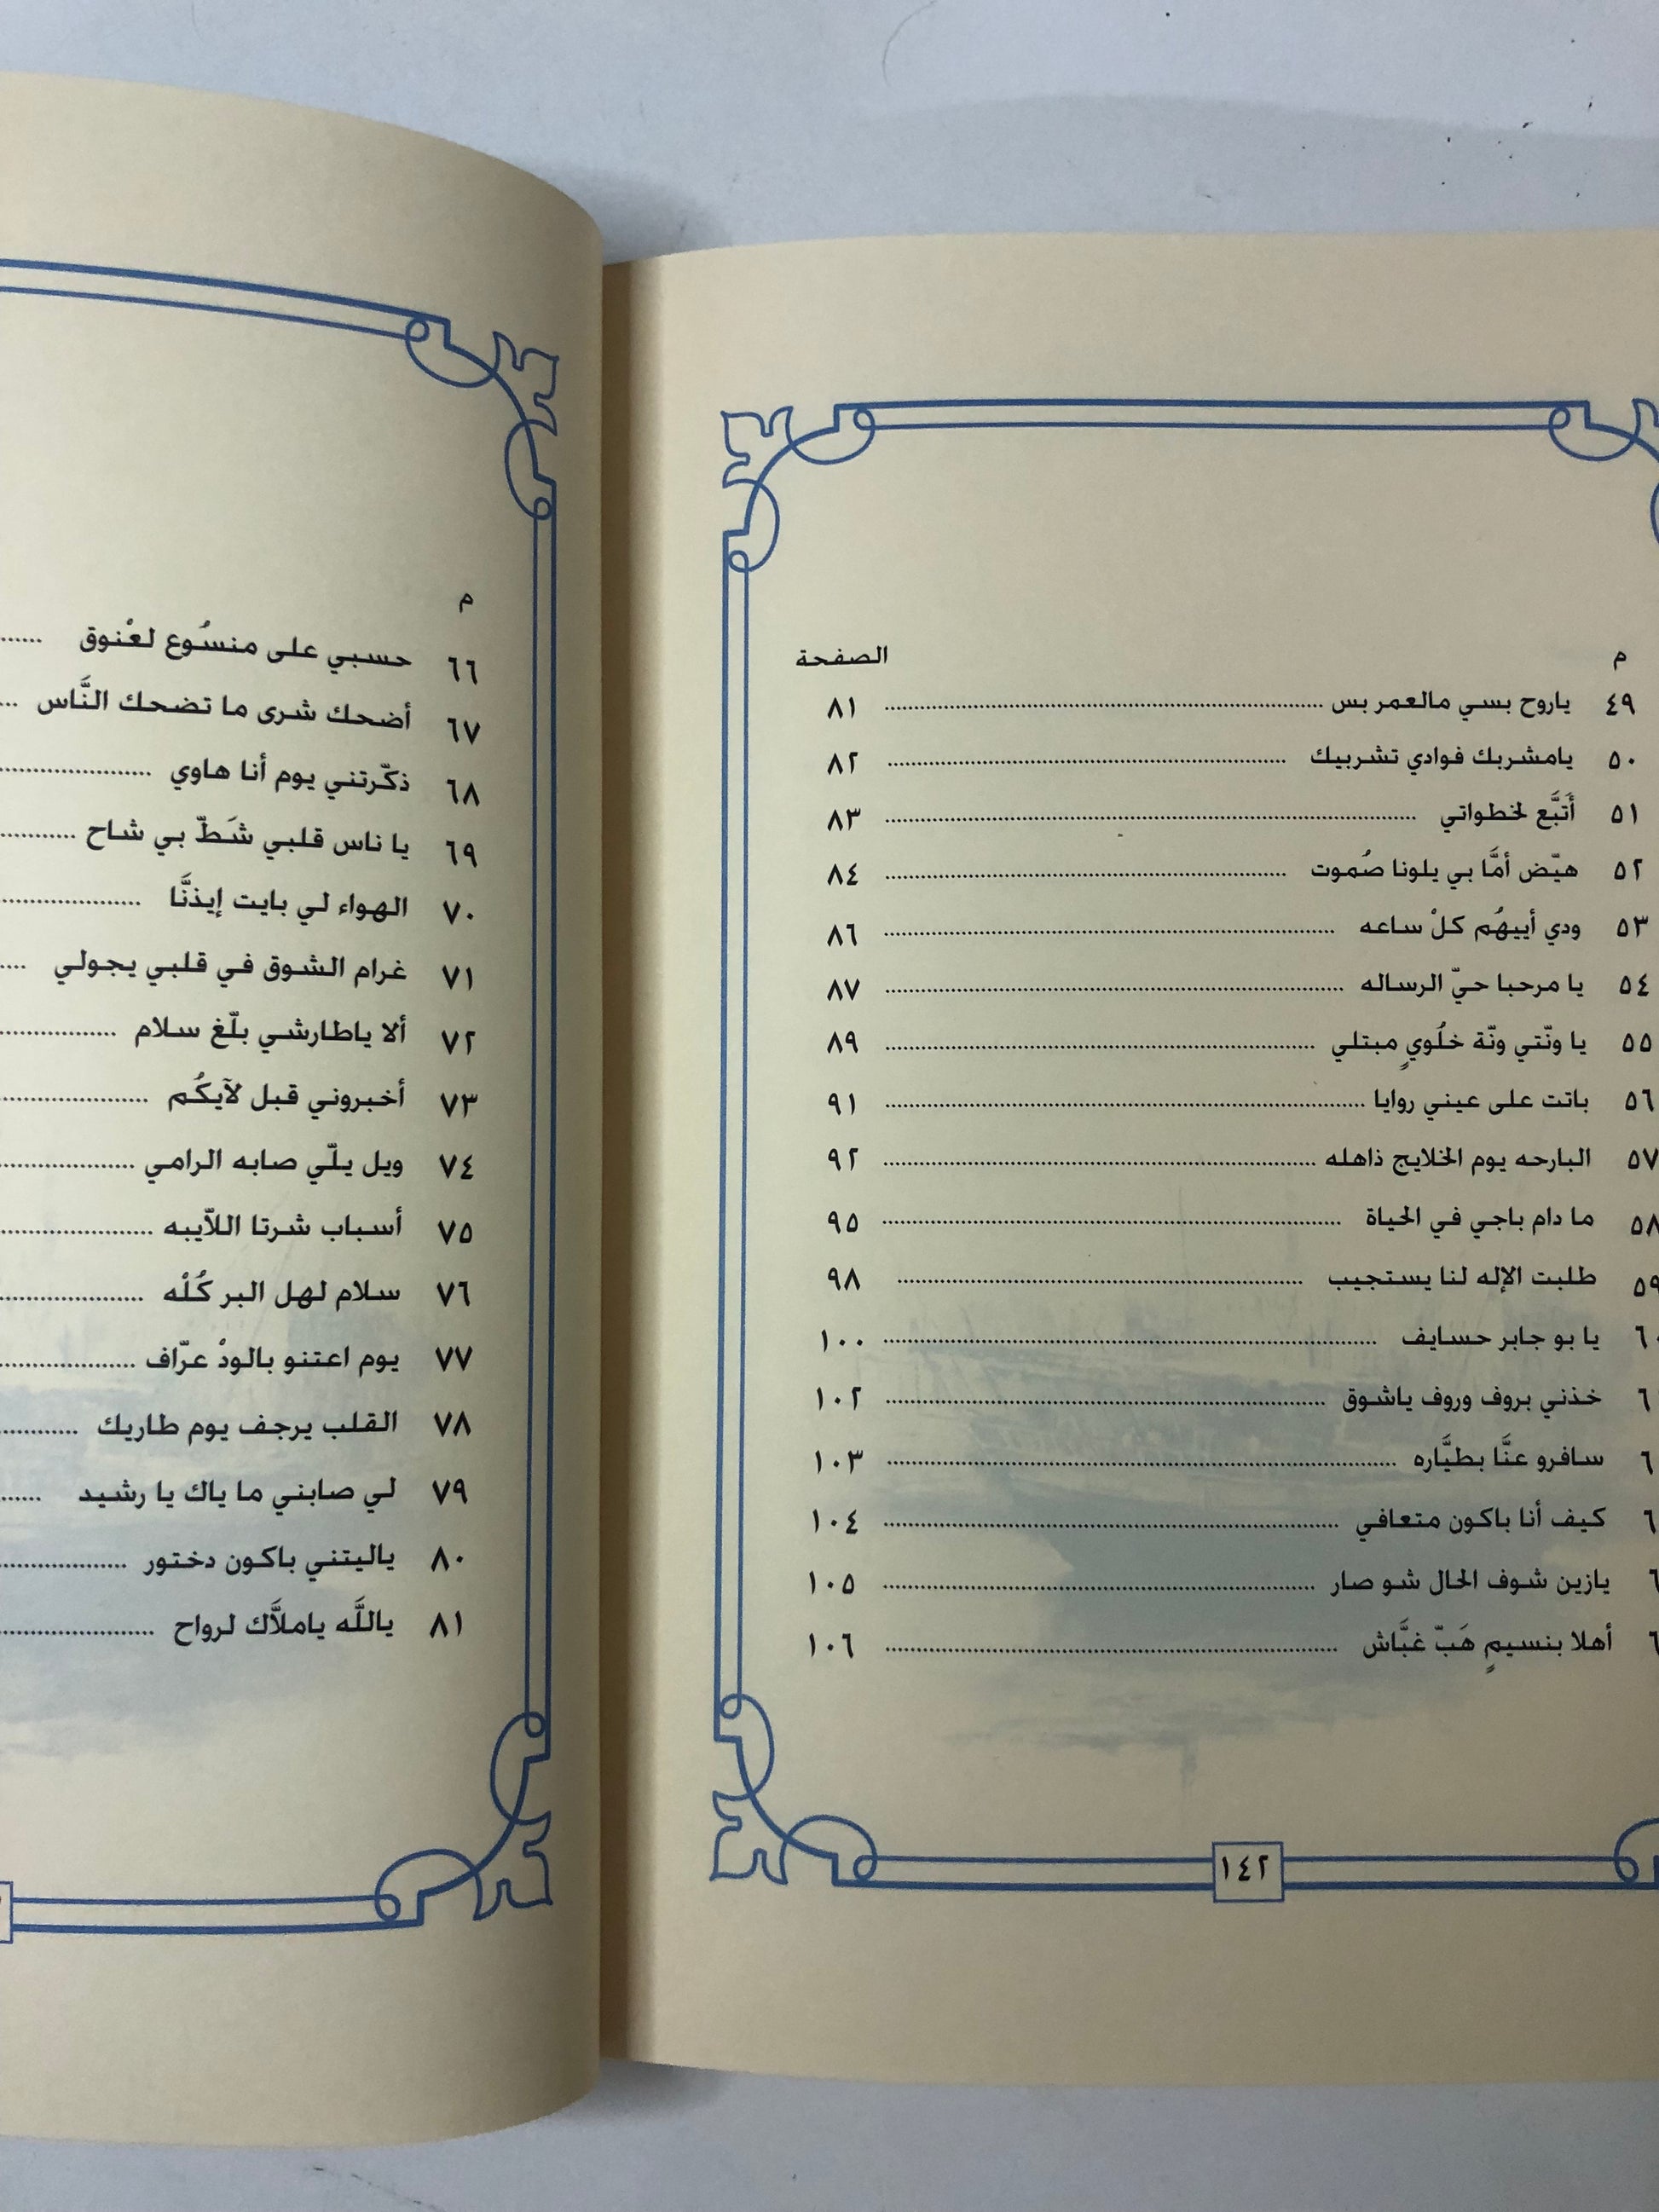 م الصفحة
٤٩ ياروح بسي مالعمر بس ٨١
٥٠ يامشربك فوادي تشربيك ٨٢
٥١ أَتبَّع لخطواتي ٨٣
٥٢ هيّض أمَّا بي يلونا صُموت ٨٤
٥٣ ودي أييهُم كلْ ساعه ٨٦
٥٤ يا مرحبا حيّ الرساله ٨٧
٥٥ يا ونّتي ونّة خلُويٍ مبتلي ٨٩
٥٦ باتت على عيني روايا ٩١
٥٧ البارحه يوم الخلايج ذاهله ٩٢
٥٨ ما دام باجي في الحياة ٩٥
٥٩ طلبت الإله لنا يستجيب ٩٨
٦٠ يا بو جابر حسايف ١٠٠
٦ خذني بروف وروف ياشوق ١٠٢
٦ سافرو عنَّا بطيَّاره ١٠٣
٦ كيف أنا باكون متعافي ١٠٤
٦ يازين شوف الحال شو صار ١٠٥
٦ أهلا بنسيمٍ هَبّ غبَّاش ١٠٦
١٤٢
م
٦٦ حسبي على منسُوع لعْنوق
٦٧ أضحك شرى ما تضحك النَّاس
٦٨ ذكّرتني يوم أنا هاوي
٦٩ يا ناس قلبي شَطّ بي شاح
٧٠ الهواء لي بايت إيذنَّا
٧١ غرام الشوق في قلبي يجولي
٧٢ ألا ياطارشي بلّغ سلام
٧٣ أخبروني قبل لآيكُم
٧٤ ويل يلّي صابه الرامي
٧٥ أسباب شرتا اللآيبه
٧٦ سلام لهل البر كُلْه
٧٧ يوم اعتنو بالودْ عرّاف
٧٨ القلب يرجف يوم طاريك
٧٩ لي صابني ما ياك يا رشيد
٨٠ ياليتني باكون دختور
٨١ ياللَّه ياملاَّك لرواح